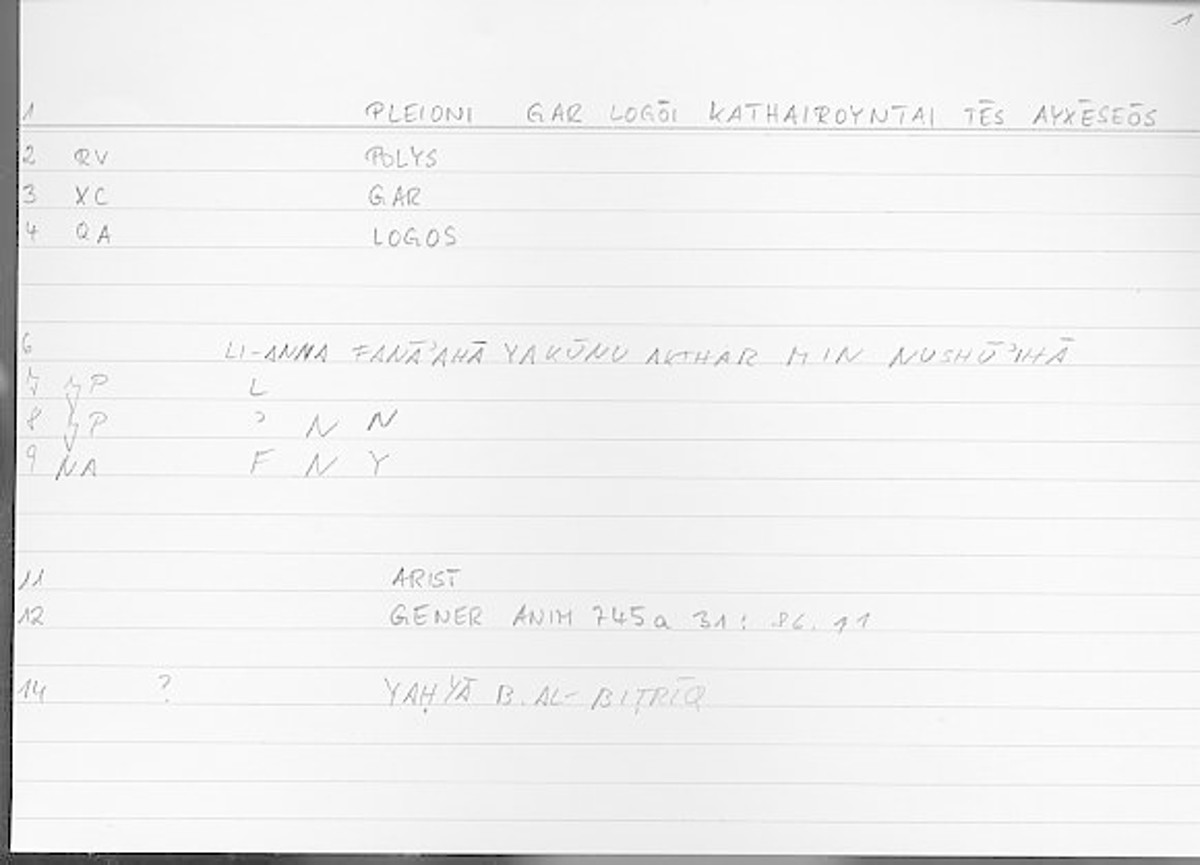 1
1 PLEIONI GAR LOGŌI KATHAIROYNTAI TĒS AYXĒSEŌS
2 QV POLYS
3 XC GAR
4 QA LOGOS
6 LI-ANNA FANĀʾAHĀ YAKŪNU AKTHAR MIN NUSHŪʾIHĀ
7 P L
8 P ʾ N N
9 NA F N Y
11 ARIST
12 GENER ANIM 745a 31: 86.11
14 ? YAḤYĀ B. AL-BIṬRĪQ